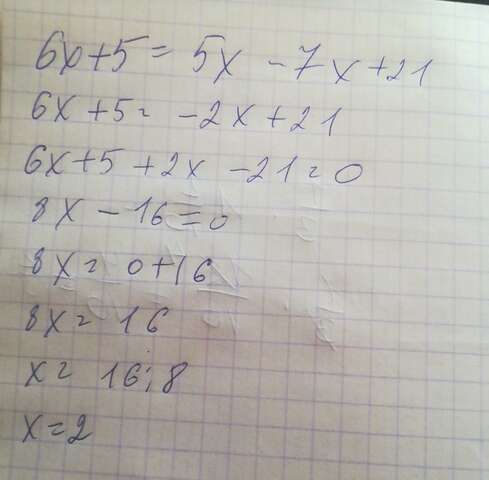 6x+5= 5x -7x+21
6x+5= -2x+21
6x+5+2x -21=0
8x -16=0
8x= 0+16
8x= 16
x= 16:8
x=2